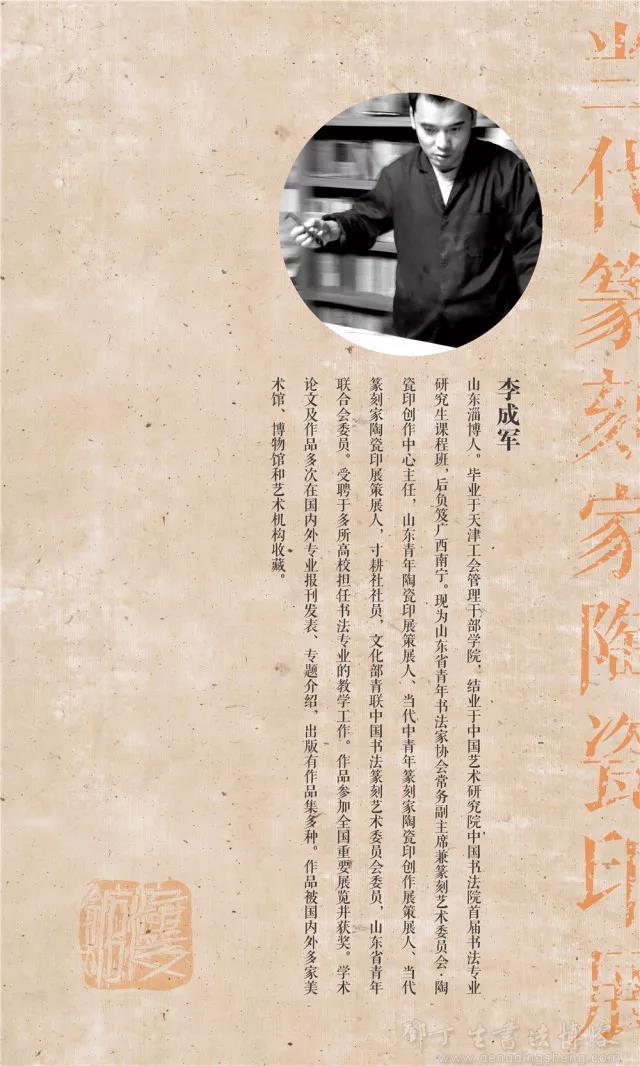 当代篆刻家陶瓷印展
李成军
山东淄博人。毕业于天津工会管理干部学院，结业于中国艺术研究院中国书法院首届书法专业
研究生课程班，后负笈广西南宁。现为山东省青年书法家协会常务副主席兼篆刻艺术委员会·陶
瓷印创作中心主任，山东青年陶瓷印展策展人、当代中青年篆刻家陶瓷印创作展策展人、当代
篆刻家陶瓷印展策展人，寸耕社社员，文化部青联中国书法篆刻艺术委员会委员，山东省青年
联合会委员。受聘于多所高校担任书法专业的教学工作。作品参加全国重要展览并获奖。学术
论文及作品多次在国内外专业报刊发表、专题介绍，出版有作品集多种。作品被国内外多家美
术馆、博物馆和艺术机构收藏。
邓丁生书法博客
www.dengdingsheng.com